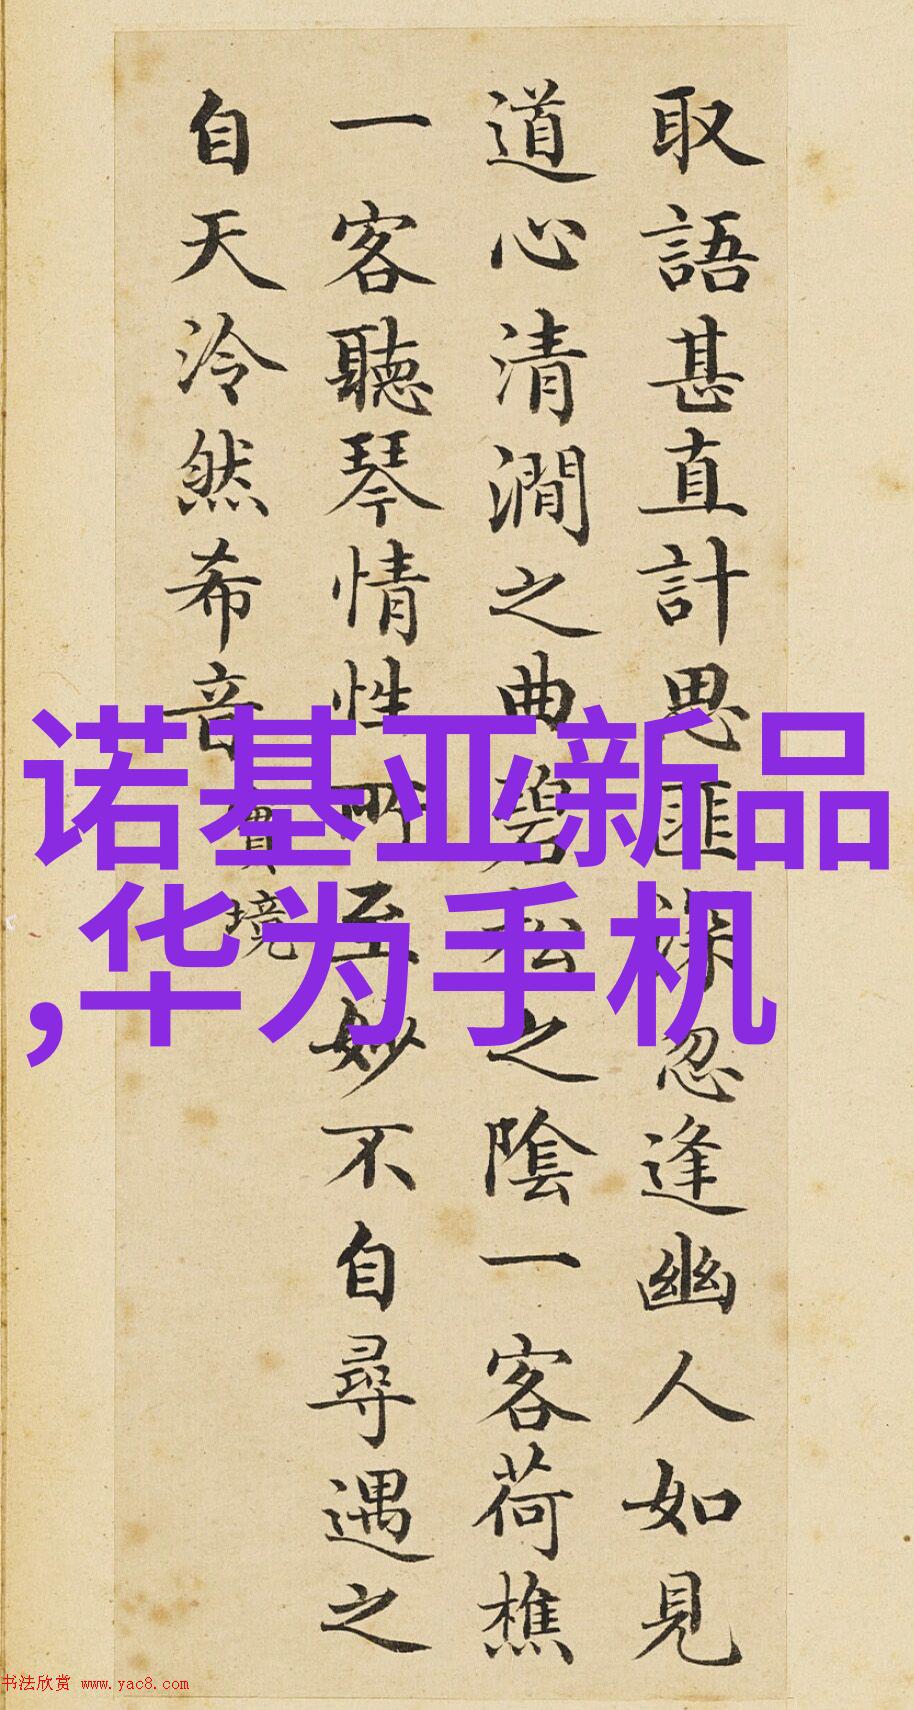 取語甚直計思匪深忽逢幽人如見
道心清澗之曲碧松之陰一客荷樵
一客聽琴情性所至妙不自尋遇之
自天泠然希音實境
诺基亚新品
,华为手机
书法欣赏 www.yac8.com